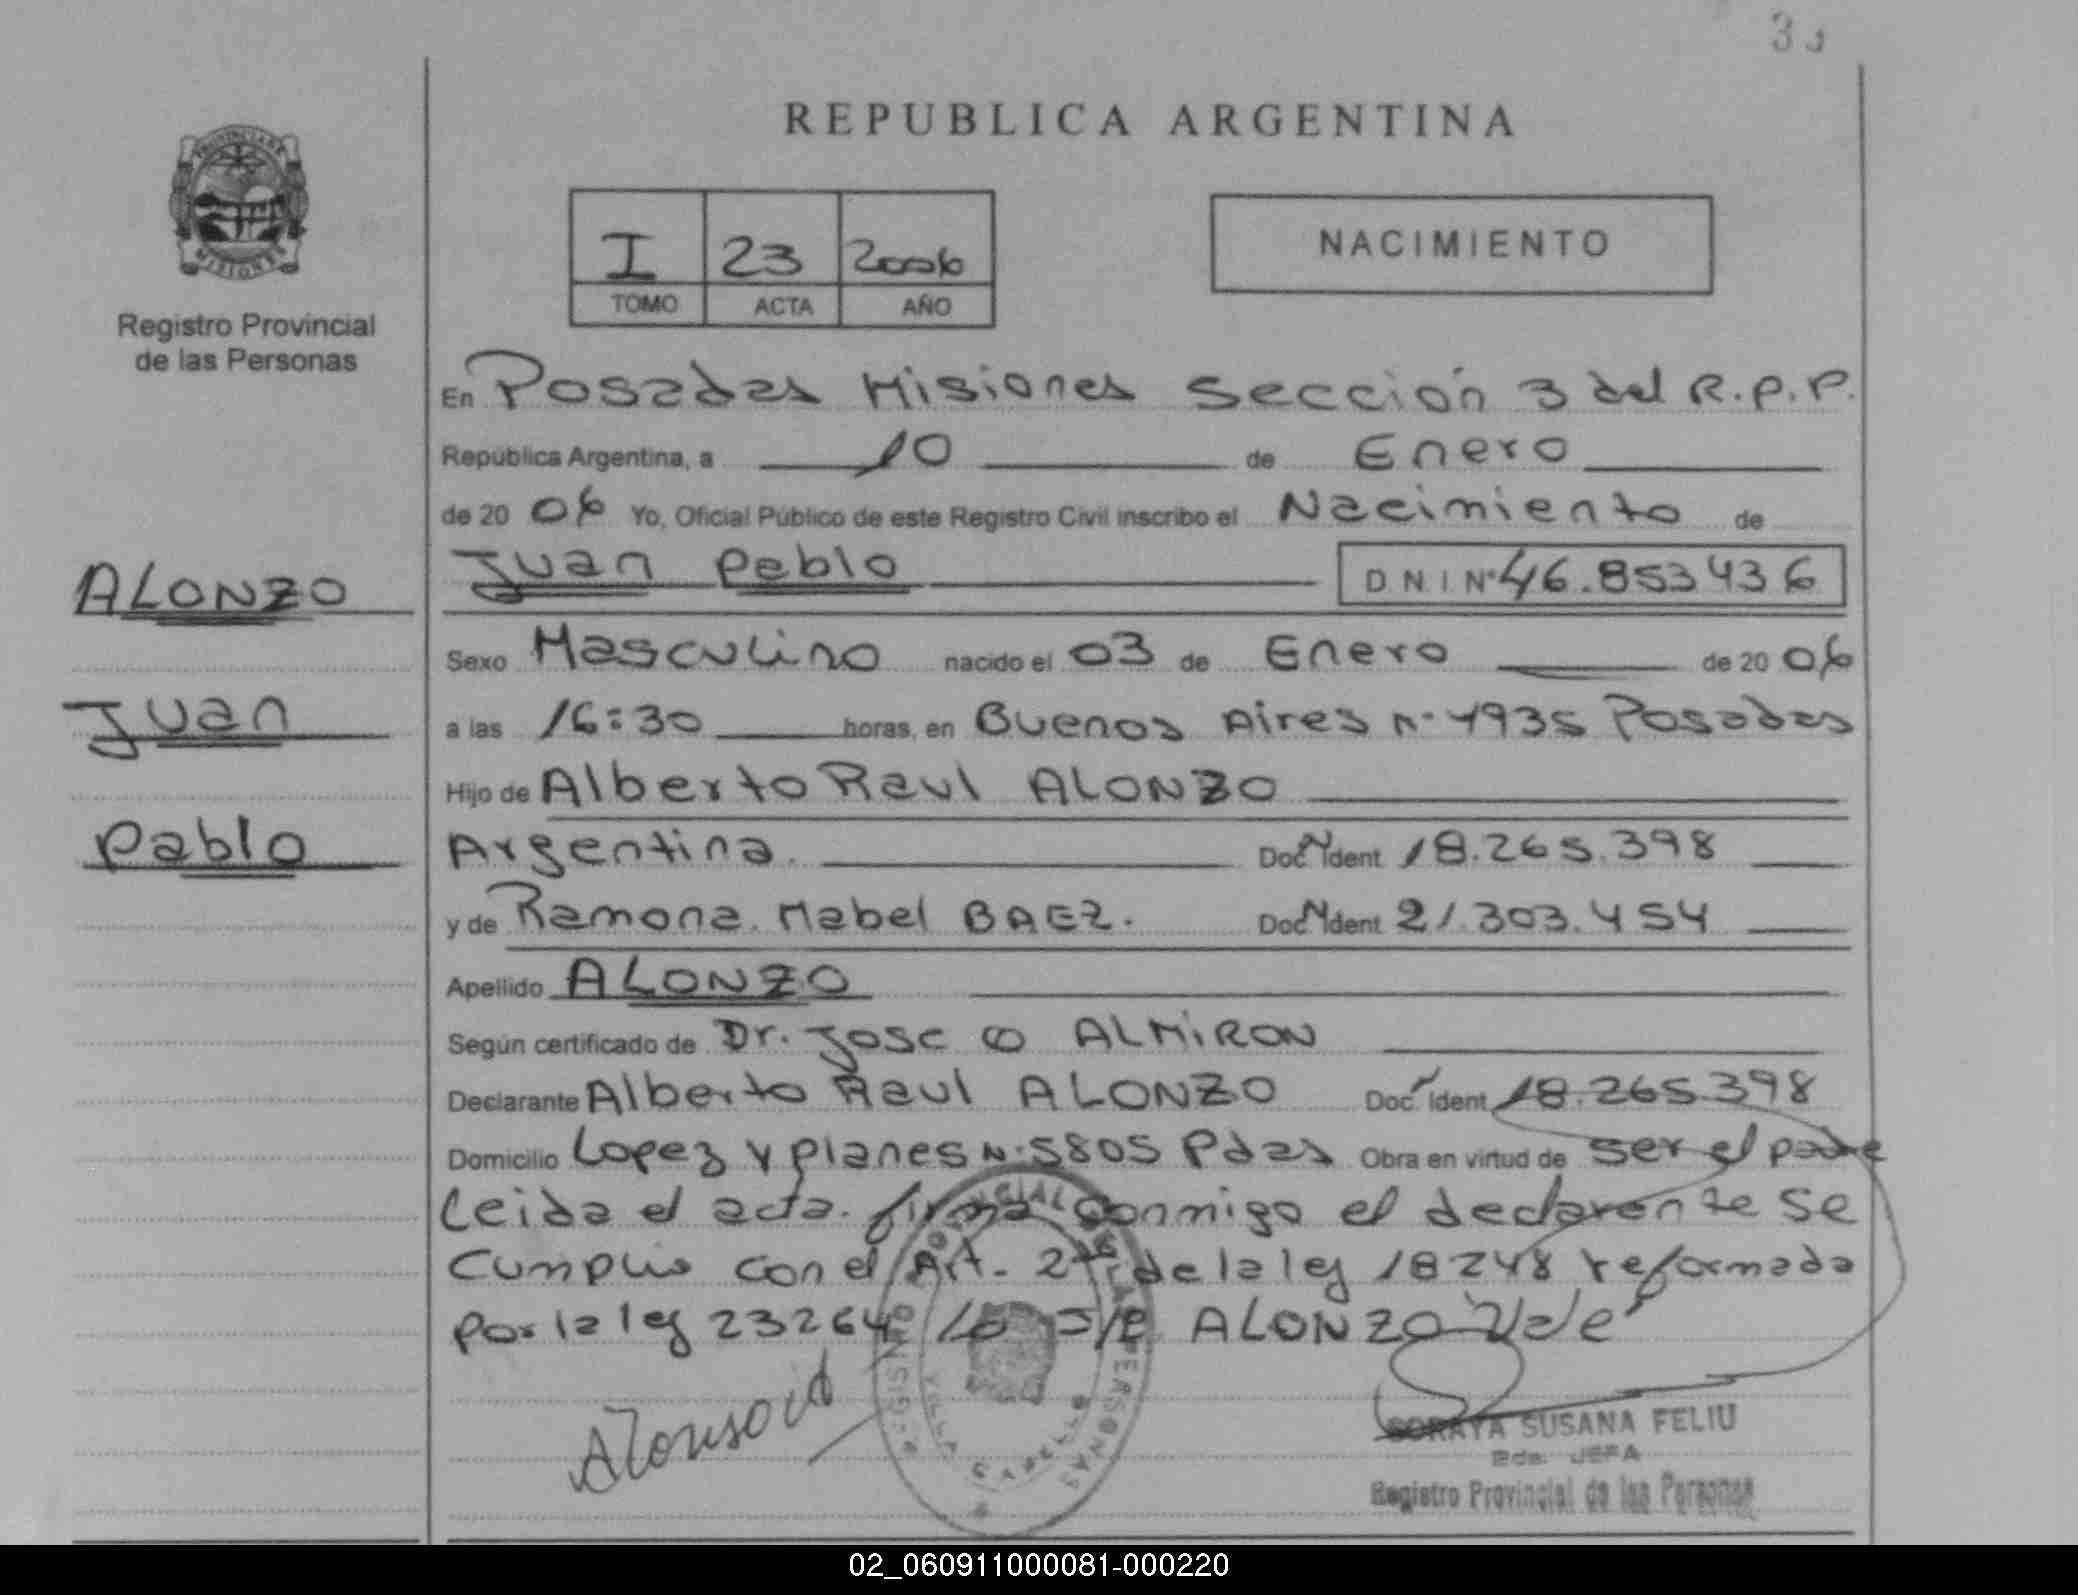 REPUBLICA ARGENTINA
PROVINCIA DE
MISIONES
Registro Provincial
de las Personas
I 23 2006
TOMO ACTA AÑO
NACIMIENTO
En Posadas Misiones Sección 3 del R.P.P.
República Argentina, a 10 de Enero
de 20 06 Yo, Oficial Público de este Registro Civil inscribo el Nacimiento de
ALONZO
Juan Pablo D.N.I Nº 46.853436
Sexo Masculino nacido el 03 de Enero de 20 06
Juan
a las 16:30 horas, en Buenos Aires Nº 4935 Posadas
Hijo de Alberto Raul ALONZO
Pablo
Argentina. Doc. Ident 18.265.398
y de Ramona Mabel BAEZ. Doc. Ident 21.303.454
Apellido ALONZO
Según certificado de Dr. Jose O ALMIRON
Declarante Alberto Raul ALONZO Doc. Ident 18.265.398
Domicilio Lopez y planes N. 5805 Pdas Obra en virtud de ser el padre
Leida el acta. firma conmigo el declarante se
Cumplio con el Art. 2 de la ley 18248 reformada
por la ley 23264 ALONZO Vale
REGISTRO PROVINCIAL DE LAS PERSONAS
VILLA CABELLO
SORAYA SUSANA FELIU
JEFA
Registro Provincial de las Personas
02_060911000081-000220